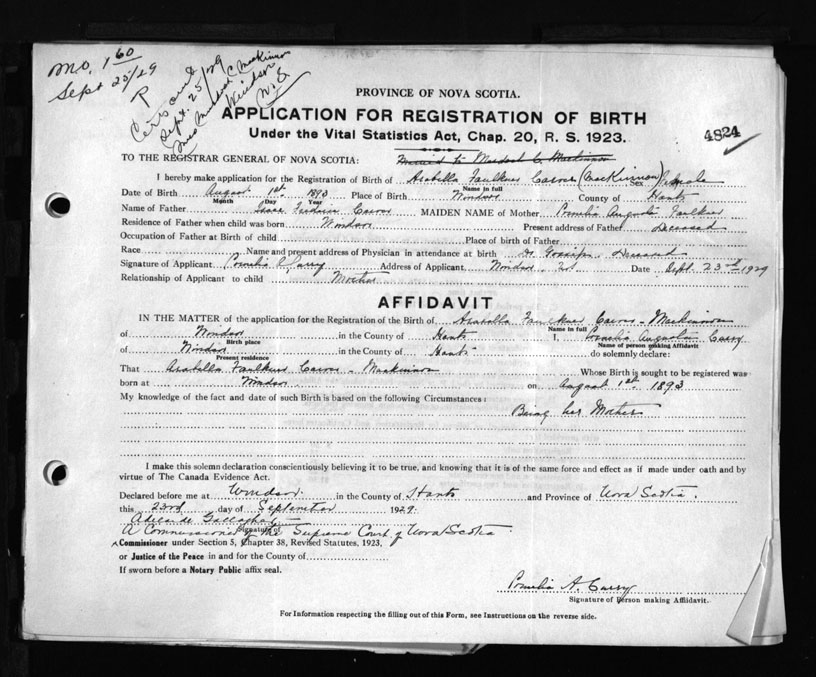 MO. 1 60
Sept 25/29
R
Sept. 25/29
Mrs Murdock C MacKinnon
Windsor
N.S.
PROVINCE OF NOVA SCOTIA.
APPLICATION FOR REGISTRATION OF BIRTH
Under the Vital Statistics Act, Chap. 20, R. S. 1923.
4824
TO THE REGISTRAR GENERAL OF NOVA SCOTIA: Married to Murdock C MacKinnon
I hereby make application for the Registration of Birth of Arabella Faulkner (MacKinnon) Sex Female
Name in full
Date of Birth August 1st 1893 Place of Birth Windsor County of Hants
Month Day Year
Name of Father Isaac MAIDEN NAME of Mother Augusta Faulkner
Residence of Father when child was born Windsor Present address of Father Deceased
Occupation of Father at Birth of child Place of birth of Father
Race Name and present address of Physician in attendance at birth Dr Deceased
Signature of Applicant Address of Applicant Windsor N.S. Date Sept. 23rd 1929
Relationship of Applicant to child Mother
AFFIDAVIT
IN THE MATTER of the application for the Registration of the Birth of Arabella Faulkner - MacKinnon
Name in full
of Windsor in the County of Hants I, Augusta
Birth place Name of person making Affidavit
of Windsor in the County of Hants do solemnly declare:
Present residence
That Arabella Faulkner - MacKinnon Whose Birth is sought to be registered was
born at Windsor on August 1st 1893
My knowledge of the fact and date of such Birth is based on the following Circumstances:
Being her Mother
I make this solemn declaration conscientiously believing it to be true, and knowing that it is of the same force and effect as if made under oath and by
virtue of The Canada Evidence Act.
Declared before me at Windsor in the County of Hants and Province of Nova Scotia.
this 23rd day of September 1929.
Signature of
A Commissioner of the Supreme Court of Nova Scotia
Commissioner under Section 5, Chapter 38, Revised Statutes, 1923,
or Justice of the Peace in and for the County of
If sworn before a Notary Public affix seal.
A.
Signature of Person making Affidavit.
For Information respecting the filling out of this Form, see Instructions on the reverse side.